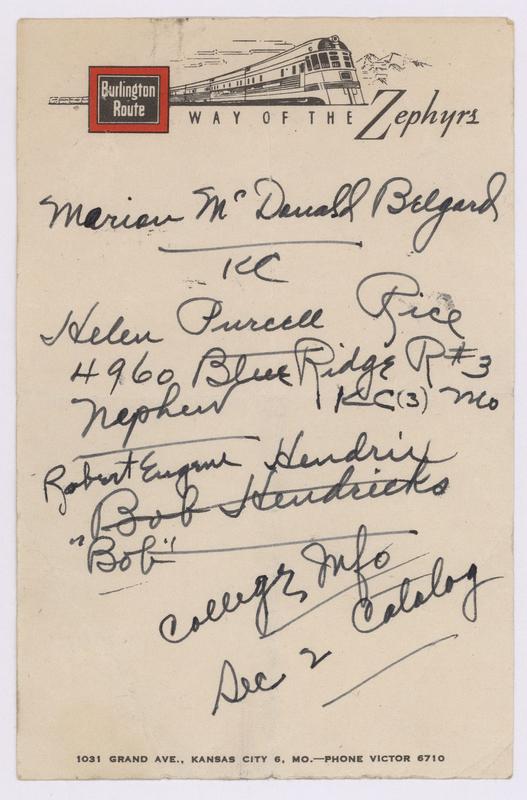 Burlington
Route
WAY OF THE Zephyrs
Marion McDonald Belgard
KC
Helen Purcell Rice
4960 Blue Ridge R#3
Nephew KC(3) Mo
Robert Eugene Hendrix
Bob Hendricks
"Bob"
College Info
Sec 2 Catalog
1031 GRAND AVE., KANSAS CITY 6, MO.—PHONE VICTOR 6710